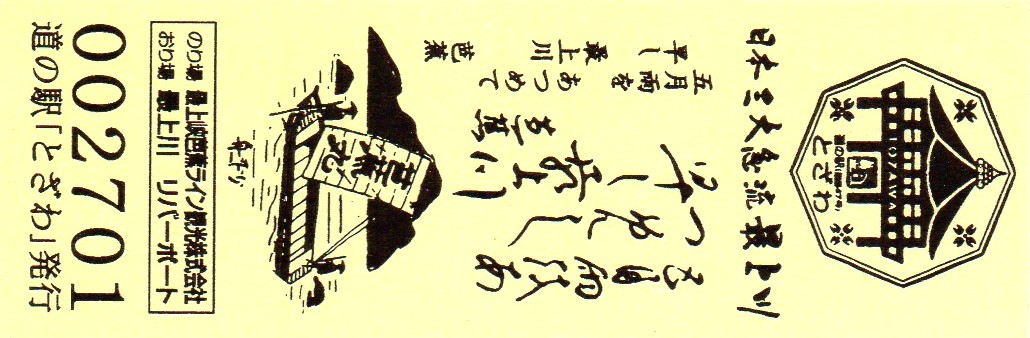 道の駅(高麗館)
とざわ
TOZAWA
日本三大急流最上川
五月雨を
あつめて
早し 最上川
芭蕉
芭蕉丸
のり場 最上峡芭蕉ライン観光株式会社
おり場 最上川 リバーポート
002701
道の駅「とざわ」発行